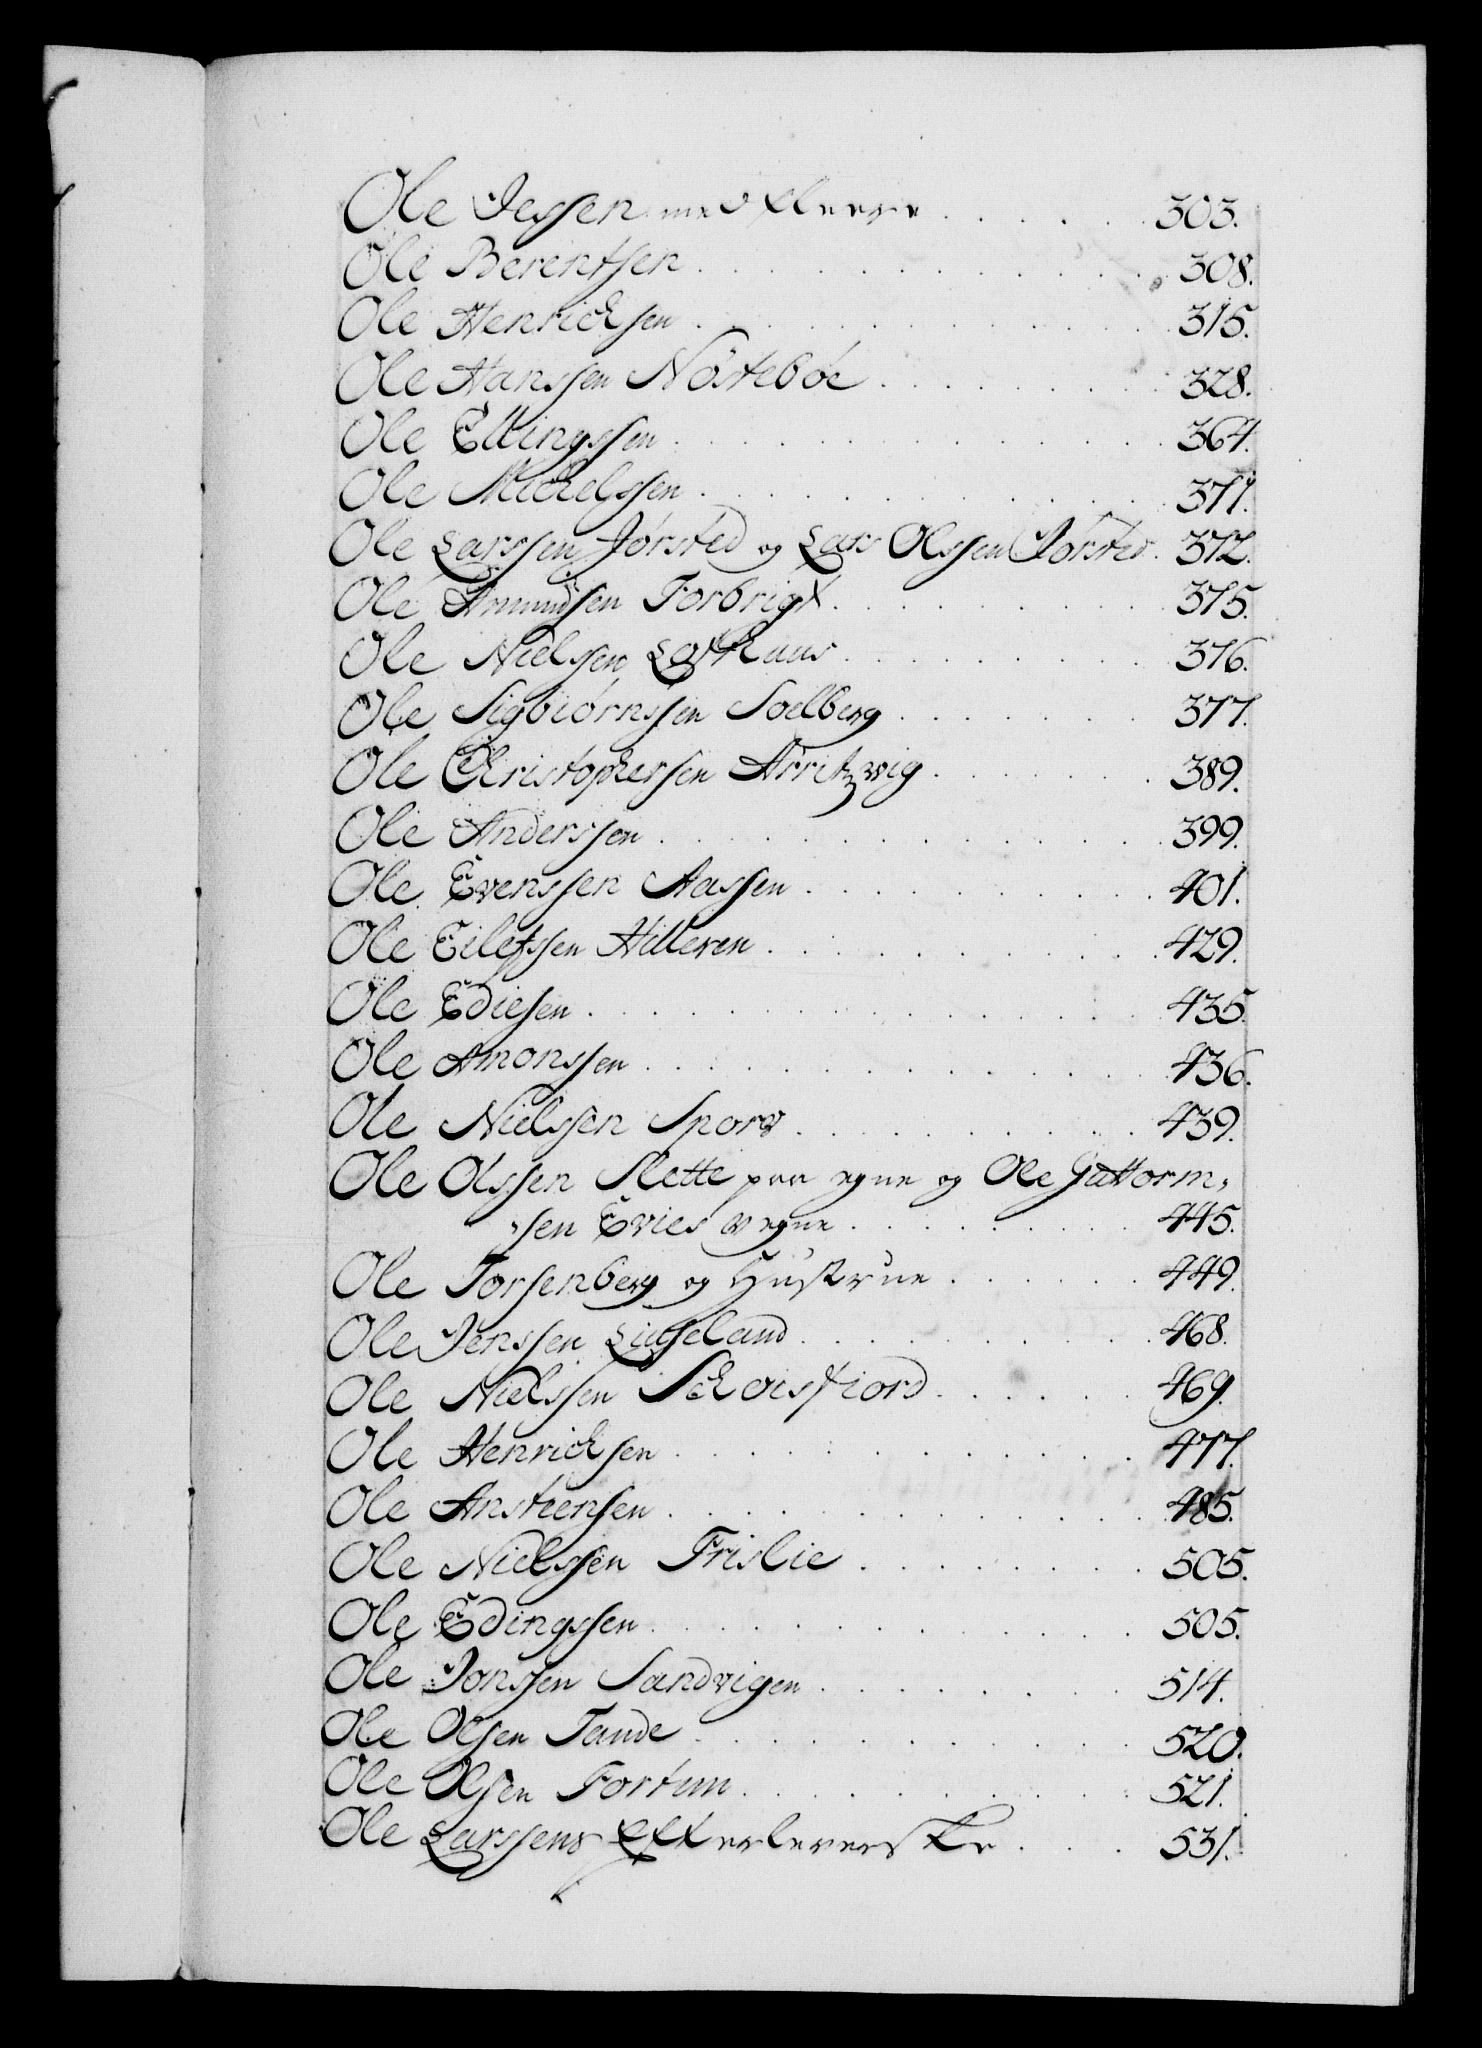 Ole Jessen med fleere . . . . . . 303.
Ole Berentsen . . . . . . . . . . . 308.
Ole Henrichsen . . . . . . . . . . 315.
Ole Hanssen Nöstebøe . . . . . . . 328.
Ole Ellingssen . . . . . . . . . . 364.
Ole Michelssen . . . . . . . . . . 371.
Ole Larssen Jørsted og Lars Olssen Jørsted. 372.
Ole Amundsen Forbrigt . . . . . . 375.
Ole Nielssen . . . . . . . . . 376.
Ole Sigbiørnssen Soelberg . . . . . . 377.
Ole Christophersen Arritzvig . . . . . 389.
Ole Anderssen . . . . . . . . . . 399.
Ole Evenssen Aassen . . . . . . . . 401.
Ole Eilefssen Hilleren . . . . . . . 429.
Ole Ediesen . . . . . . . . . . . 435.
Ole Amonssen . . . . . . . . . . 436.
Ole Nielssen Sporv . . . . . . . . 439.
Ole Olssen Slette paa egne og Ole Guttorm,
,sen Evies vegne . . . . . . . . . 445.
Ole Torsenberg og Hustrue . . . . . . 449.
Ole Jenssen . . . . . . . . . 468.
Ole Nielssen . . . . . . . 469.
Ole Henrichsen . . . . . . . . . . 477.
Ole Ansteensen . . . . . . . . . . 485.
Ole Nielssen Frislie . . . . . . . . 505.
Ole Edingssen . . . . . . . . . . 505.
Ole Jonssen Sandvigen . . . . . . . . 514.
Ole Olsen Tande . . . . . . . . . 520.
Ole Olsen Fortun . . . . . . . . . 521.
Ole Larssens Efterleverske . . . . 531.